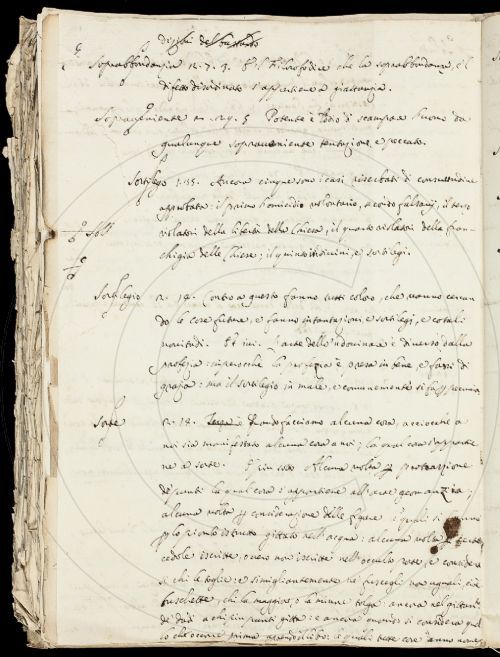 dizioni del bastardo
Soprabbondanza n. 7. 3. E 'l Filosofo dice che la soprabbondanza, e 'l
difetto disordinato s'appartiene a
Sopravveniente m. 5 Potente è Iddio di scampare l'uomo da
qualunque sopravveniente tentazione, e peccato.
Sortilego 1. 35. Ancora cinque sono i casi riserbati di consuetudine
approbata: il primo homicidio volontario, secondo falsarj, il terzo
violatori della libertà della Chiesa, il quarto violatori della fran-
chigia delle Chiese; il quinto indivini, e sortilegi.
Sortilegio n. 19. Contro a questo fanno tutti coloro, che vanno cercan
do le cose future, e fanno incantazioni e sortilegi, e cotali
novitadi. Et ivi. L'arte dello 'ndovinare è diverso dalla
profezia: imperocchè la profezia è presa in bene, e fassi di
grazia: ma il sortilegio in male, e comunemente si fa per pecunia
Sorte n. 18. Quando facciamo alcuna cosa, acciocchè a
noi sia manifestata alcuna cosa a noi; la qual cosa s'appartie
ne a sorte. E più sotto Alcuna volta per protrazzione
de' punti la qual cosa s'appartiene all'arte geomanzia;
alcuna volta per considerazione delle figure, i quali si fanno
per lo piombo istrutto gittato nell'acqua: alcuna volta
cedole iscritte, o vero non iscritte nell'occulto poste, e considera
si chi le toglie: e simigliantemente ne' fuscegli non uguali, cioè
buschette, chi la maggiore, o la minore tolga: ancora nel gittare
de' dadi a chi più punti gitta: e ancora quando si considera quel
lo che occorre prima aprendo libro: le quali tutte cose anno nome